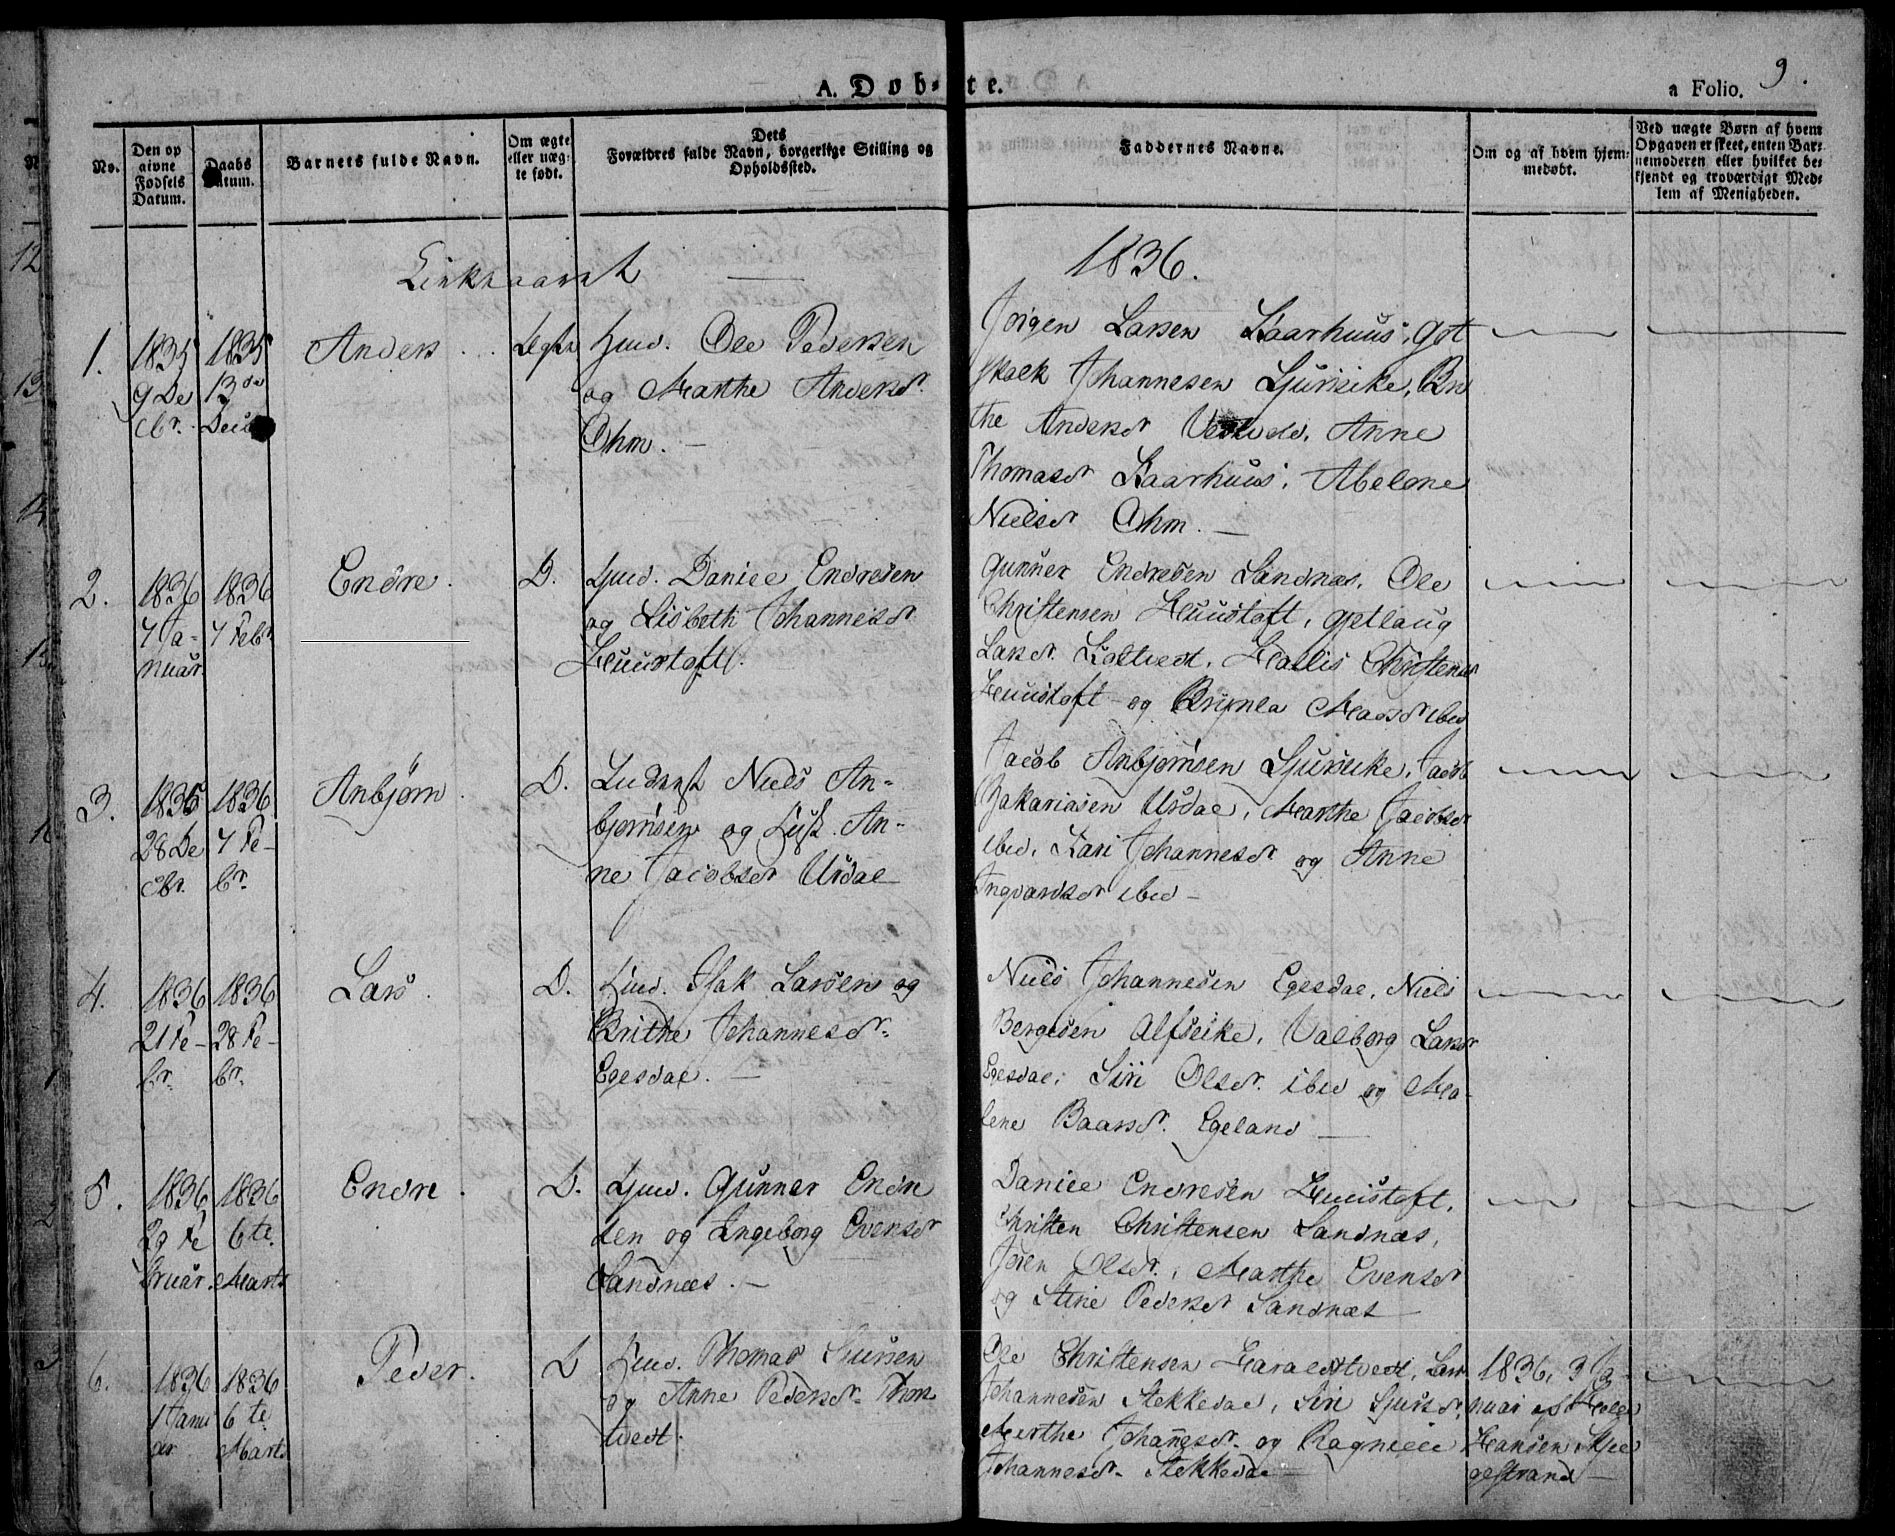 A. Døb-te.
a Folio. 9.
No.
Den op
givne
Fødsels
Datum.
Daabs
Datum.
Barnets fulde Navn.
Om ægte
eller uæg-
te født.
Dets
Forældres fulde Navn, borgerlige Stilling og
Opholdssted.
Faddernes Navne.
Om og af hvem hjem-
medøbt.
Ved uægte Børn af hvem
Opgaven er skeet, enten Bar-
nemoderen eller hvilket be-
kjendt og troværdigt Med-
lem af Menigheden.
1836.
1.
1835
9 De
cbr.
1835
13de
Anders
Ægte
Huusm. Ole Pedersen
og Marthe Andersdr
Ohm. —
Jørgen Larsen Kaarhuus, Got
skalk Johannesen
the Andersdr Anne
Thomasdr Kaarhuus, Abelone
Nielsdr Ohm. —
2.
1836
7 Ja-
nuar
1836
7 Febr
Endre.
D.
Gmd. Daniel Endresen
og Lisbeth Johannesdr
Huustoft.
Gunner Endresen Sandnæs, Ole
Christensen Huustoft, Gjetlaug
Larsdr. Kaltvedt, Christensdr
Huustoft og Madsdr ibid
3.
1835
28 De
cbr.
1836
7 Fe-
br.
Anbjørn
D.
Niels An-
bjørnsen og An-
ne Jacobsdr Urdal
Jacob Anbjørnsen Jacob
Zakariasen Urdal, Marthe Jacobsdr
ibid, Kari Johannesdr og Anne
Ingvardsdr ibid —
4.
1836
21 Fe-
br.
1836
28 Fe-
br.
Lars
D.
Isak Larsen og
Brithe Johannesdr.
Egesdal. —
Niels Johannesen Egesdal, Niels
Bergesen Alfseike, Valborg Larsdr
Egesdal, Siri Olsdr. ibid og Ma-
lene Baarsdr. Egeland —
5.
1836
29 Fe
bruar.
1836
6te
Marts
Endre
D.
Gmd. Gunner Endre
sen og Ingeborg Evensdr
Sandnæs. —
Daniel Endresen Huustoft,
Christen Christensen Sandnæs,
Joren Olsdr., Marthe Evensdr
og Stine Pedersdr Sandnæs
6.
1836
1 Janu
ar
1836
6te
Marts
Peder.
D
Thomas Sjursen
og Anne Pedersdr. Thom
tvedt.
Ole Christensen Haraldstvedt, Lars
Johannesen Stekkedal, Siri Sjursdr,
Marthe Johanesdr. og Ragnilde
Johannesdr. Stekkedal —
1836, 3 Ja-
nuar af
Hansen
gestrand —